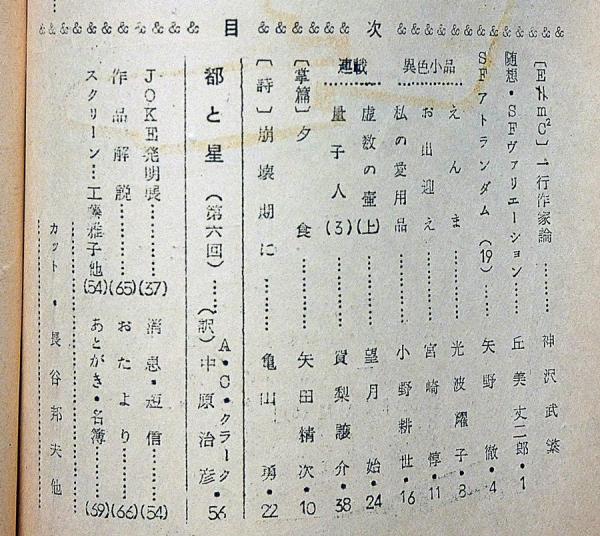 目次
〔E∦mC²〕一行作家論‥‥‥神沢武繁
随想・SFヴァリエーション‥‥‥丘美丈二郎・1
SFアトランダム(19)‥‥‥矢野徹・4
異色小品
えんま‥‥‥光波耀子・8
お出迎え‥‥‥宮崎惇・11
私の愛用品‥‥‥小野耕世・16
連載
虚数の壷(上)‥‥‥望月始・24
量子人(3)‥‥‥賀梨譲介・38
〔掌篇〕夕食‥‥‥矢田精次・10
〔詩〕崩壊期に‥‥‥亀山勇・22
都と星(第六回)‥‥‥A・C・クラーク・(訳)中原治彦・56
JOKE発明展‥‥‥(37)消息・短信‥‥‥(54)
作品解説‥‥‥(65)おたより‥‥‥(66)
スクリーン…工藤雅子他(54)あとがき・名簿‥‥‥(69)
カット・長谷邦夫他